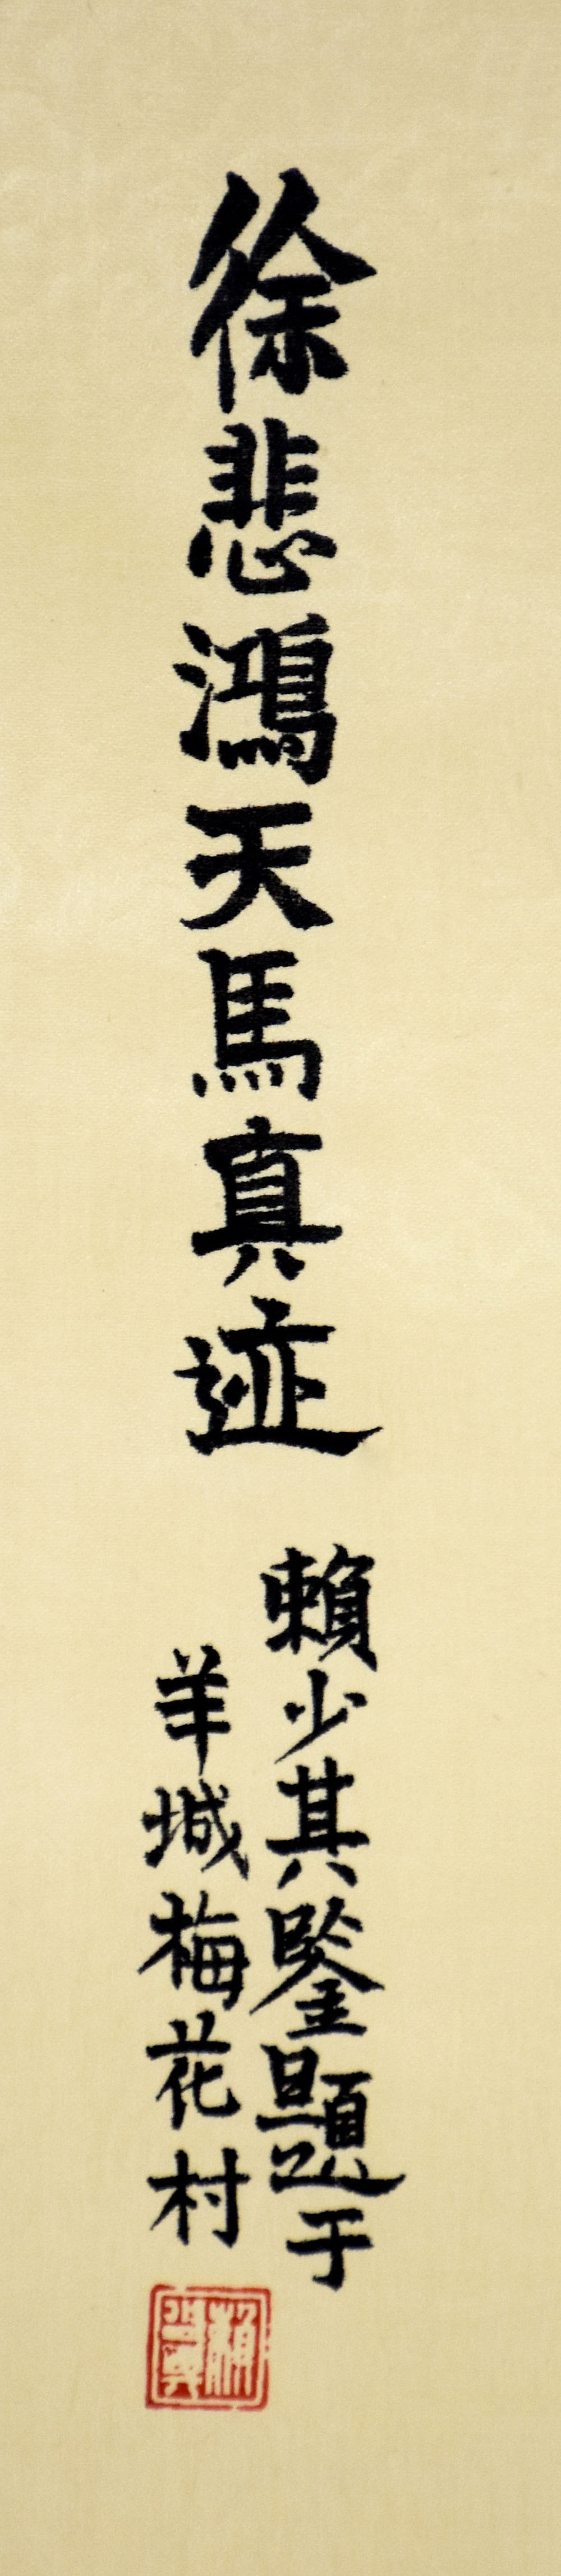 徐悲鴻天馬真迹
賴少其鑒題于
羊城梅花村